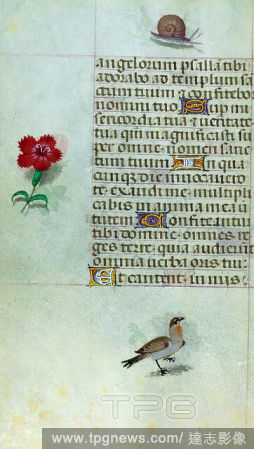 angelorum psallam tibi
adorabo ad templum sa
ctum tuum et confitebor
nomini tuo Sup mi
sericordia tua et veritate
tua qm magnificasti su
per omne nomen sanc
tum tuum In qua
cunqz die invocavero
te exaudi me multipli
cabis in anima mea vir
tutem Confiteantur
tibi domine omnes re
ges terre quia audierunt
omnia verba oris tui:
Et cantent in viis:
TPG
www.tpgnews.com/達志影像